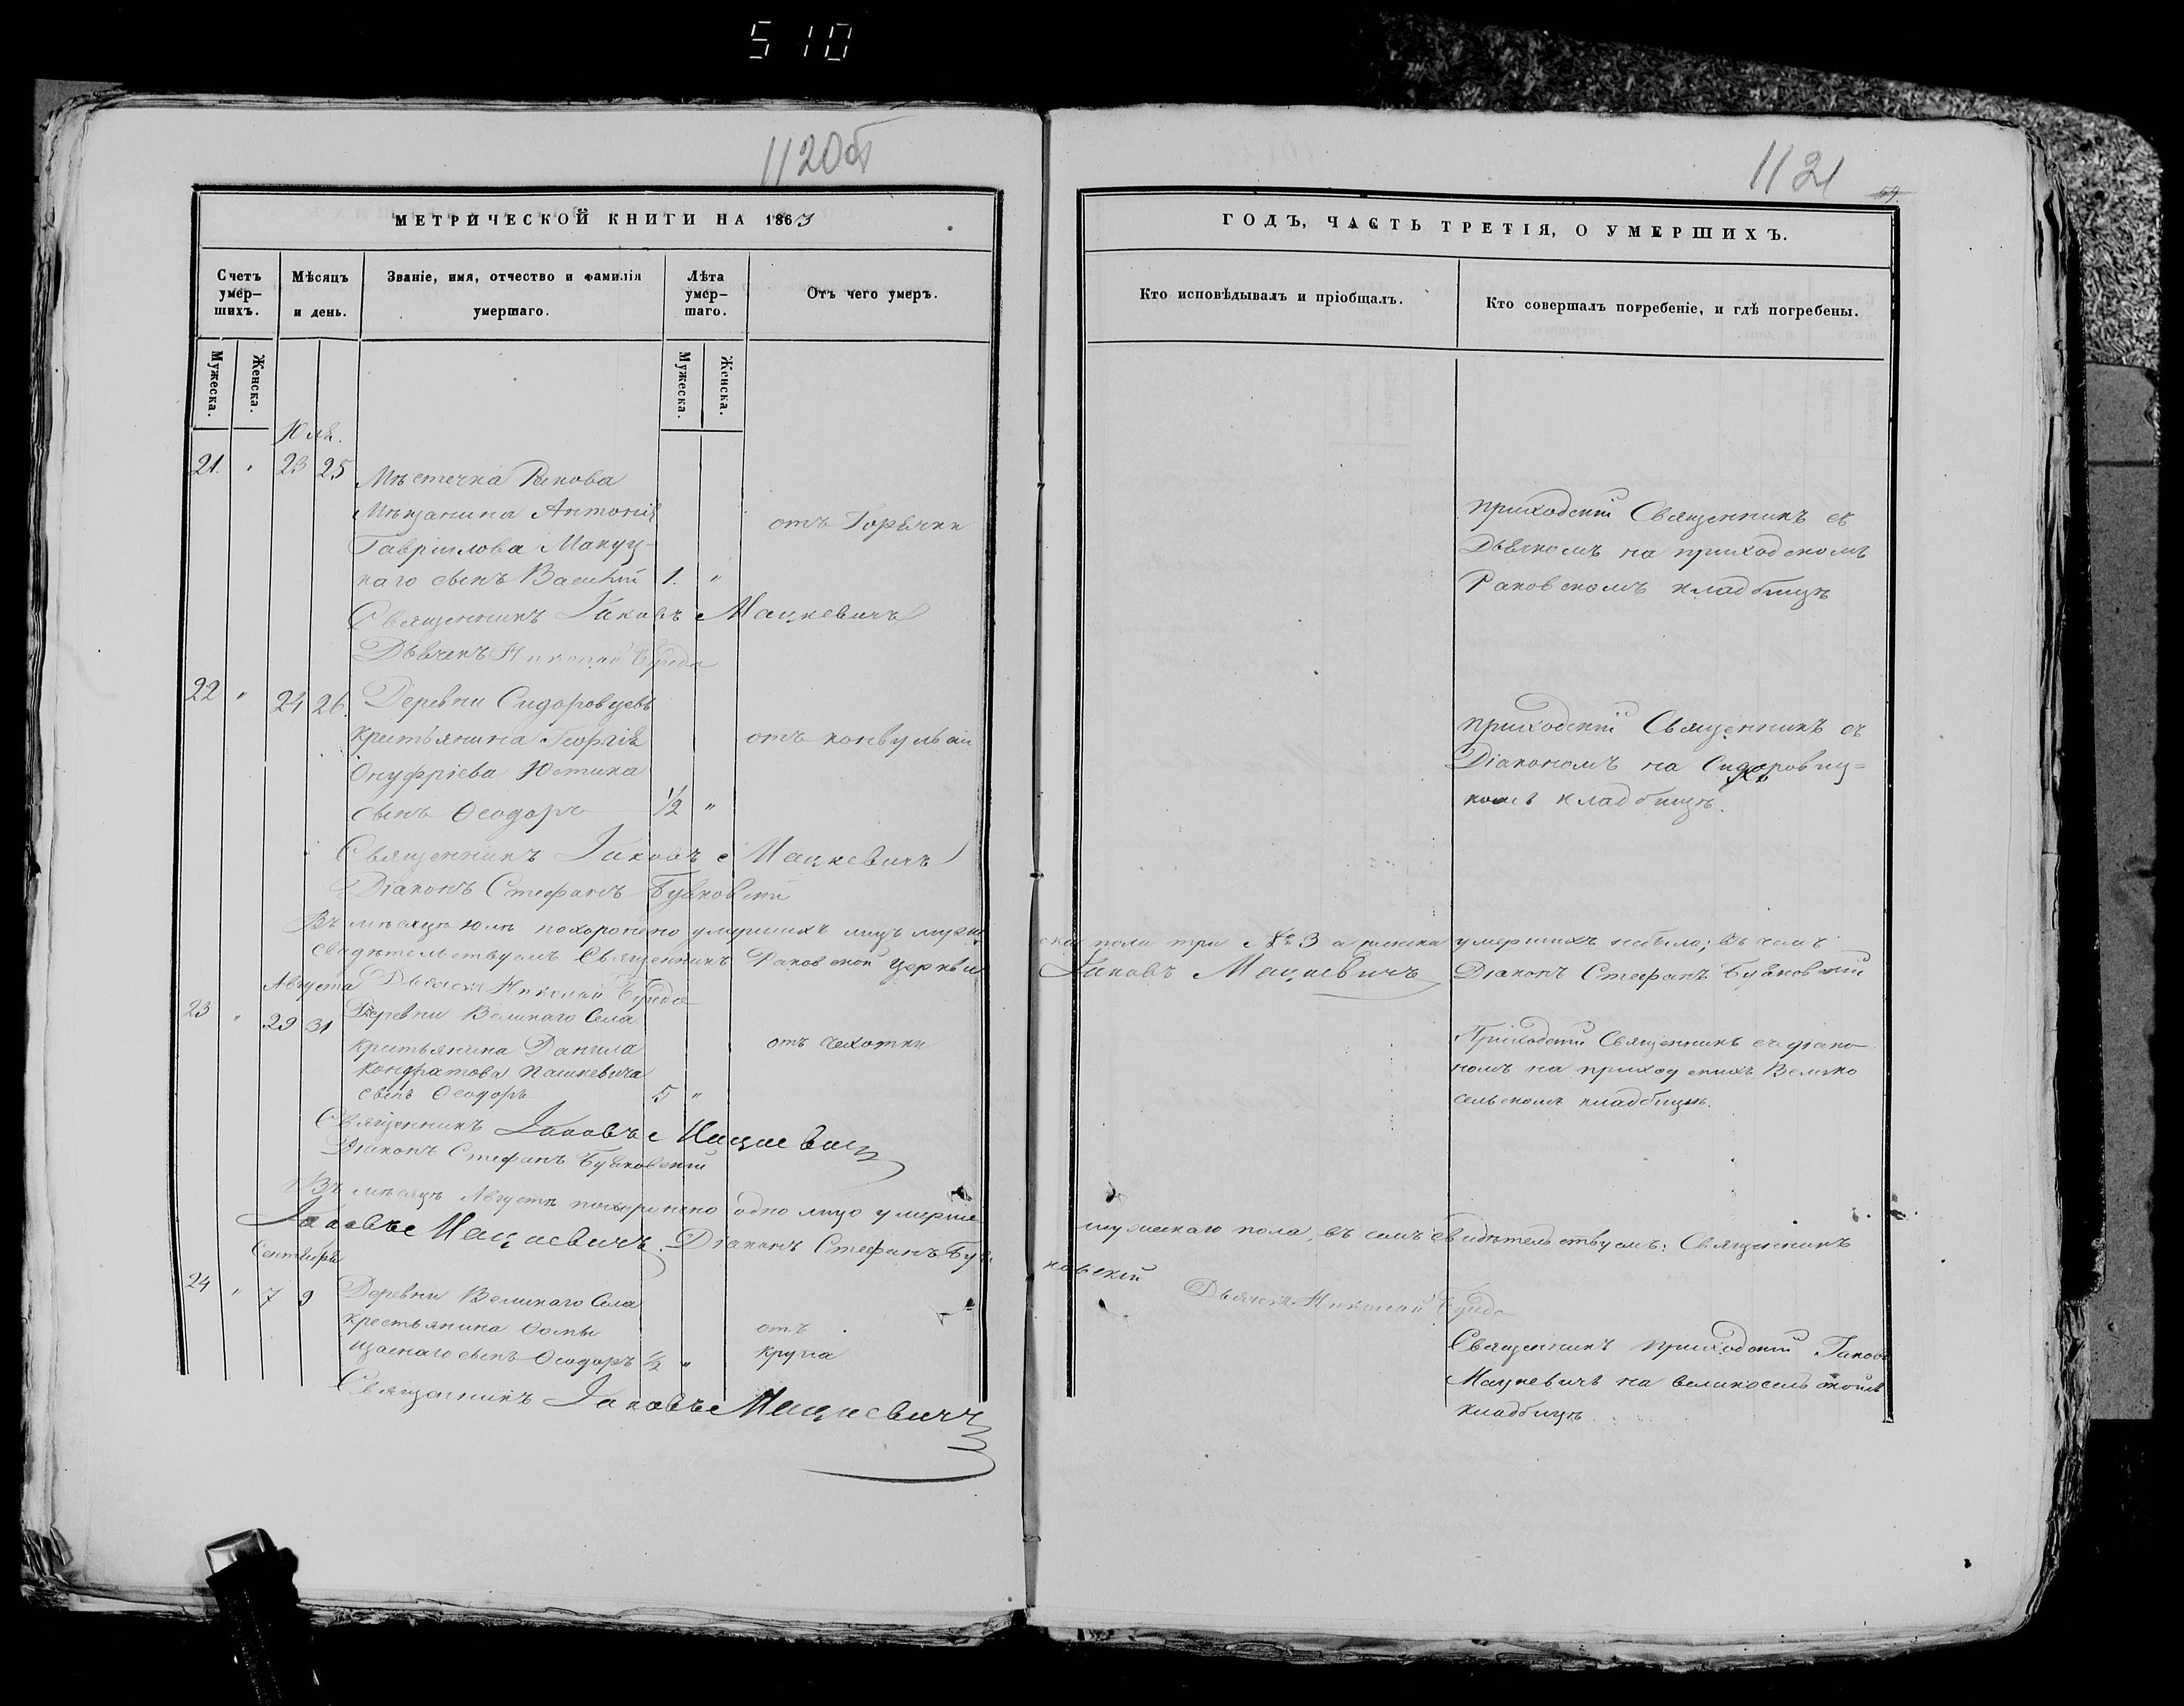 510
1120об
МЕТРИЧЕСКОЙ КНИГИ НА 1863
Счетъ умер-шихъ.
Мѣсяцъ и день.
Званіе, имя, отчество и фамилія умершаго.
Лѣта умер-шаго.
Отъ чего умеръ.
Мужеска.
Женска.
Мужеска.
Женска.
Юль.
21. " 23 25 Мѣстечка Ракова
Мѣщанина Антонія
отъ Горячки
Гавріилова Мануц-
каго сынъ Василій 1. "
Священникъ Іаковъ Мацкевичъ
Дьячекъ Николай
22 " 24 26. Деревни Сидоровцевъ
Крестьянина Георгія
отъ конвульсіи
Онуфріева Юстика
сынъ Ѳеодоръ 1/2 "
Священникъ Іаковъ Мацкевичъ
Діаконъ Стефанъ
Въ мѣсяцѣ Юлѣ похоронено умершихъ лицъ муже
свидѣтельствуемъ Священникъ Раковской церкви
Августа Дьячекъ Николай
23 " 29 31 Деревни Великаго Села
Крестьянина Данила
отъ чахотки
Кондратова Пашкевича
сынъ Ѳеодоръ 5 "
Священникъ Іаковъ Мацкевичъ
Діаконъ Стефанъ
Въ мѣсяцѣ Августѣ похоронено одно лицо умерше
Іаковъ Мацкевичъ. Діаконъ Стефанъ
Сентябрь
24 " 7 9 Деревни Великаго Села
Крестьянина Ѳомы
отъ
сынъ Ѳеодоръ 1/2 "
крупа
Священникъ Іаковъ Мацкевичъ
1121
ГОДЪ, ЧАСТЬ ТРЕТІЯ, О УМЕРШИХЪ.
Кто исповѣдывалъ и пріобщалъ.
Кто совершалъ погребеніе, и гдѣ погребены.
приходскій Священникъ съ
Дьячкомъ на приходскомъ
Раковскомъ кладбищѣ
приходскій Священникъ съ
Діакономъ на Сидоровиц=
комъ кладбищѣ.
ска пола три № 3 а женска умершихъ небыло; въ чемъ
Іаковъ Мацкевичъ Діаконъ Стефанъ
Приходскій Священникъ съ діако-
номъ на приходскихъ Велико
сельскомъ кладбищѣ.
мужескаго пола, въ семъ свидѣтельствуемъ: Священникъ
новскій
Дьячекъ Николай
Священникъ приходскій Іаковъ
Мацкевичъ на великосельскомъ
кладбищѣ